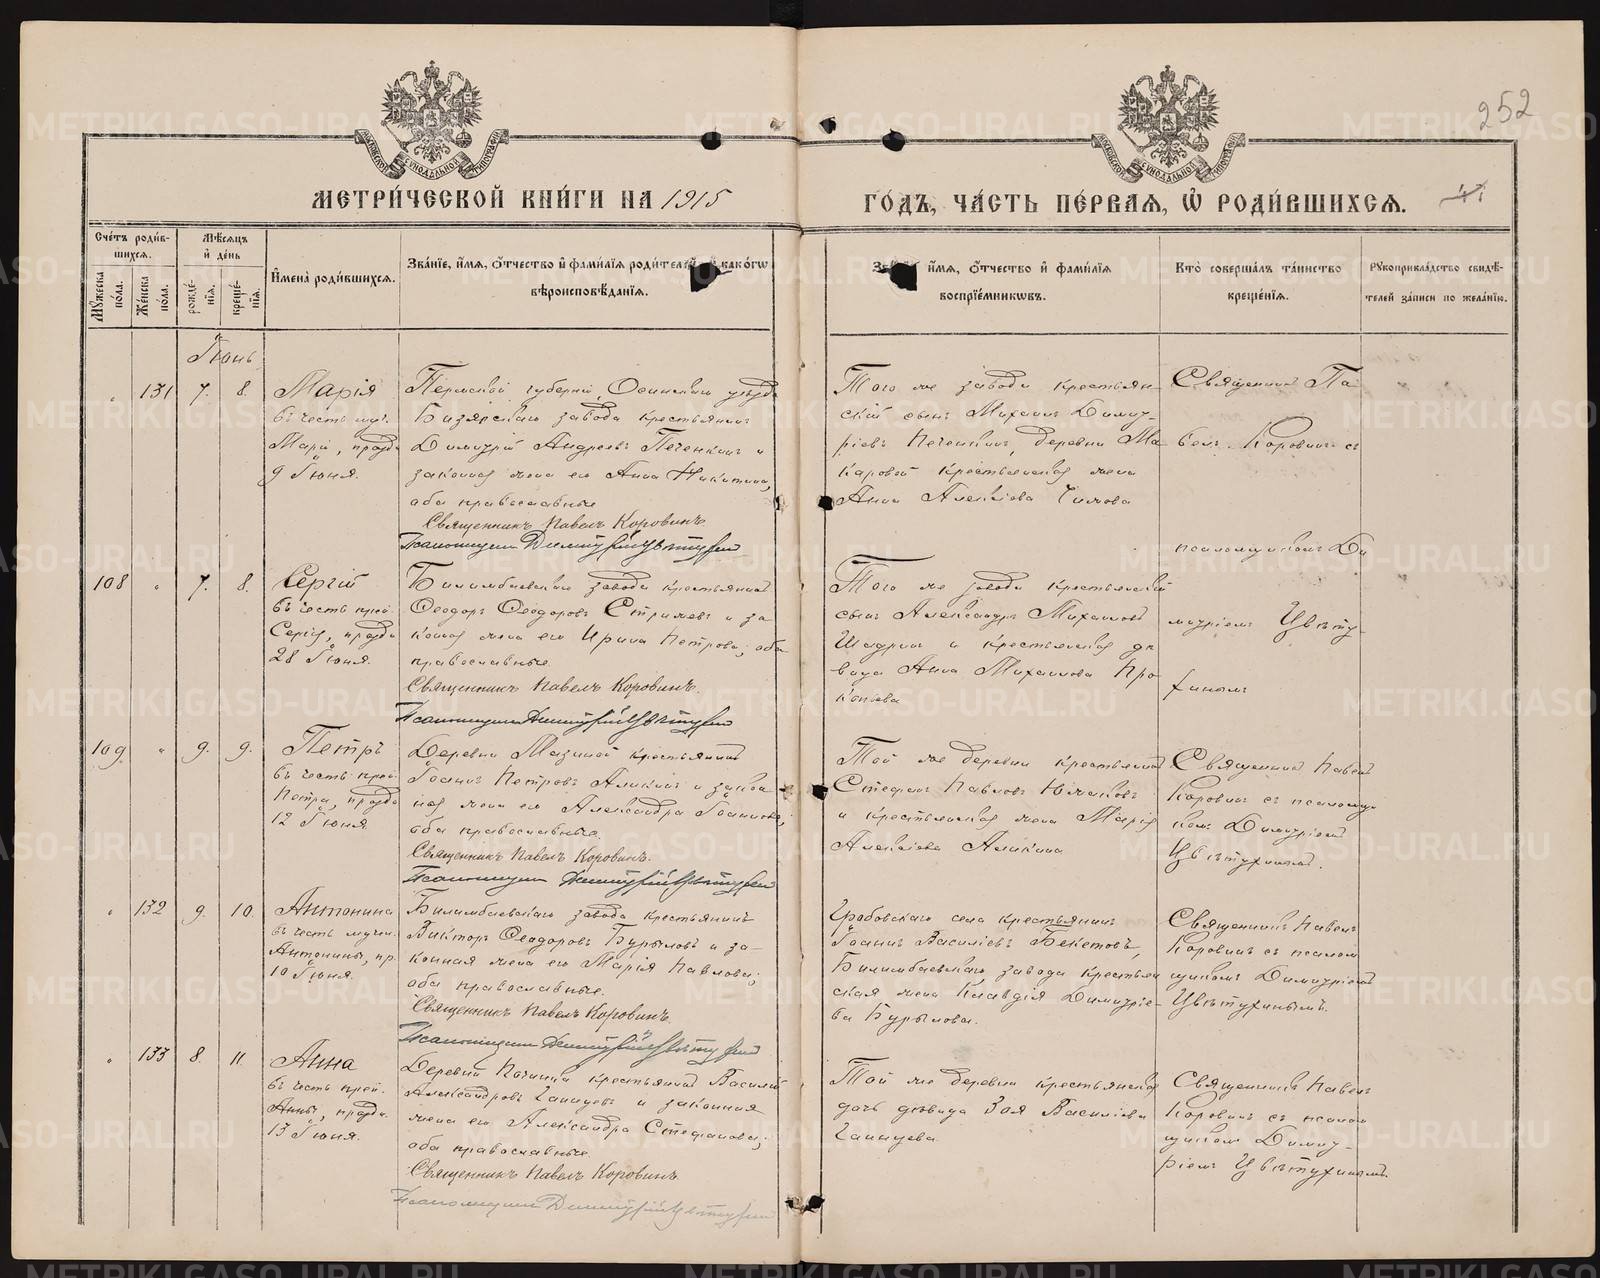 252
МОСКОВСКОЙ СѴНОДАЛЬНОЙ ТИПОГРАФІИ
МОСКОВСКОЙ СѴНОДАЛЬНОЙ ТИПОГРАФІИ
МЕТРИ́ЧЕСКОЙ КНИ́ГИ НА 1915
ГО́ДЪ, ЧА́СТЬ ПЕ́РВАЯ, Ѽ РОДИ́ВШИХСЯ.
Сче́тъ роди́в-
шихся.
Мꙋ́жеска по́ла.
Же́нска по́ла.
Мѣ́сяцъ
и҆ де́нь
рожде́-
нїя.
креще́-
нїя.
И҆мена̀ роди́вшихся.
Зва́нїе, и҆́мя, ѻ҆́тчество и҆ фами́лїя роди́телей, и҆ како́гѡ
вѣроисповѣ́данїя.
и҆́мя, ѻ҆́тчество и҆ фами́лїя
воспрїе́мникѡвъ.
Кто̀ соверша́лъ та́инство
креще́нїя.
Рꙋкоприкла́дство свидѣ́-
телей за́писи по жела́нїю.
Іюнь
131 7. 8.
Марія
въ честь муч.
Маріи, празд.
9 Іюня.
Пермской губерніи, Осинскаго уѣзда
Бизярскаго завода крестьянинъ
Димитрій Андреевъ Печенкинъ и
законная жена его Анна Никитина,
оба православные
Священникъ Павелъ Коровинъ.
Псаломщикъ Димитрій Цвѣтухин
Того же завода крестьян-
скій сынъ Михаилъ Димит-
ріевъ Печенкинъ, деревни Ма-
каровой крестьянская жена
Анна Алексіева
Священникъ Па-
велъ Коровинъ съ
псаломщикомъ Ди-
митріемъ Цвѣту-
хинымъ
108 7. 8.
Сергій
въ честь преп.
Сергія, празд.
28 Іюня.
Билимбаевскаго завода крестьянинъ
Ѳеодоръ Ѳеодоровъ и за-
конная жена его Ирина Петрова, оба
православные.
Священникъ Павелъ Коровинъ.
Псаломщикъ Димитрій Цвѣтухин
Того же завода крестьянскій
сынъ Александръ Михаиловъ
Шадринъ и крестьянская дѣ-
вица Анна Михаилова Про-
копьева
109 9. 9.
Петръ
въ честь преп.
Петра, празд.
12 Іюня.
Деревни крестьянинъ
Іоаннъ Петровъ Аликинъ и закон-
ная жена его Александра Іоаннова;
оба православные.
Священникъ Павелъ Коровинъ.
Псаломщикъ Димитрій Цвѣтухин
Той же деревни крестьянинъ
Стефанъ Павловъ
и крестьянская жена Марія
Алексіева Аликина
Священникъ Павелъ
Коровинъ съ псаломщи-
комъ Димитріемъ
Цвѣтухинымъ.
132 9. 10.
Антонина
въ честь мучен.
Антонины, пр.
10 Іюня.
Билимбаевскаго завода крестьянинъ
Викторъ Ѳеодоровъ Бурыловъ и за-
конная жена его Марія Павлова;
оба православные.
Священникъ Павелъ Коровинъ.
Псаломщикъ Димитрій Цвѣтухин
Гробовскаго села крестьянинъ
Іоаннъ Василіевъ Бекетовъ,
Билимбаевскаго завода крестьян-
ская жена Клавдія Димитріе-
ва Бурылова.
Священникъ Павелъ
Коровинъ съ псалом-
щикомъ Димитріемъ
Цвѣтухинымъ.
133 8. 11.
Анна
въ честь преп.
Анны, празд.
13 Іюня.
Деревни Починка крестьянинъ Василій
Александровъ и законная
жена его Александра Стефанова;
оба православные.
Священникъ Павелъ Коровинъ.
Псаломщикъ Димитрій Цвѣтухин
Той же деревни крестьянская
дочь дѣвица Зоя Василіева
Священникъ Павелъ
Коровинъ съ псалом-
щикомъ Димит-
ріемъ Цвѣтухинымъ.
METRIKI.GASO-URAL.RU